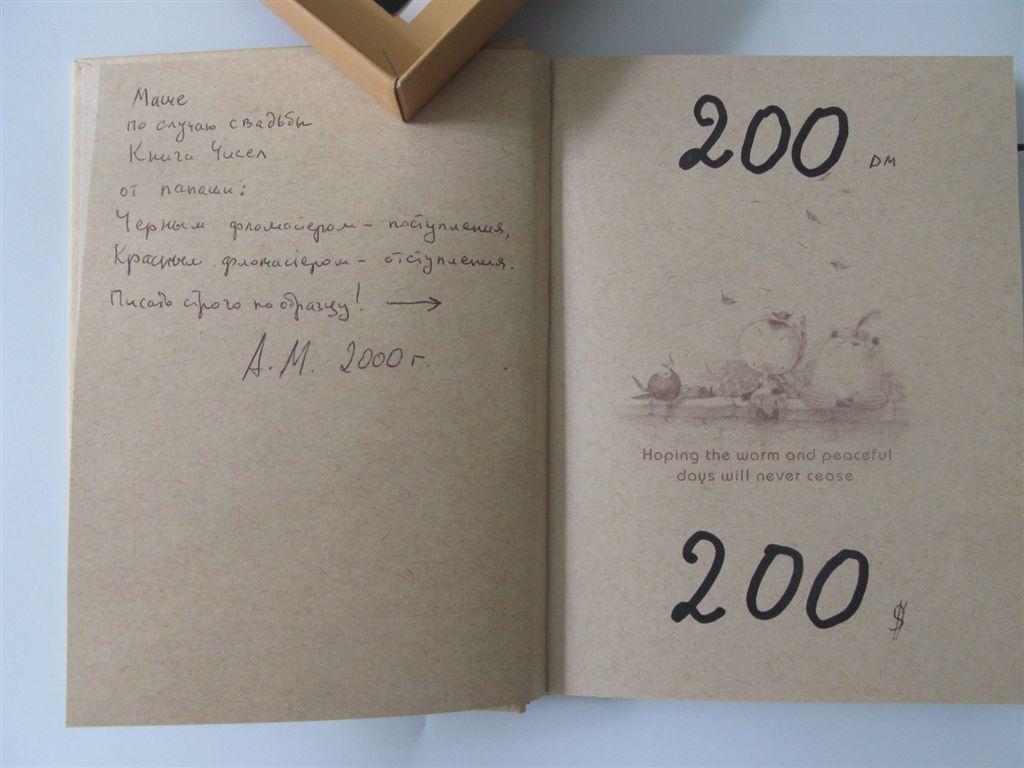 Маше
по случаю свадьбы
Книга Чисел
от папаши:
Черным фломастером – поступления,
Красным фломастером – отступления.
Писать строго по образцу! →
А.М. 2000 г.
200 DM
Hoping the warm and peaceful
days will never cease.
200 $